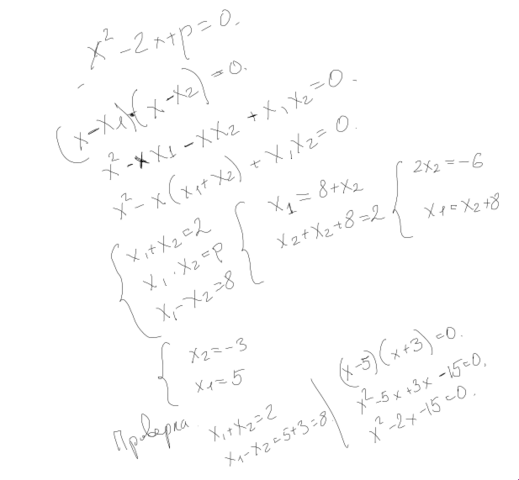 x² - 2x + p = 0.
(x - x1)·(x - x2) = 0.
x² - xx1 - xx2 + x1x2 = 0.
x² - x(x1 + x2) + x1x2 = 0.
x1 + x2 = 2
x1 · x2 = p
x1 - x2 = 8
x1 = 8 + x2
x2 + x2 + 8 = 2
2x2 = -6
x1 = x2 + 8
x2 = -3
x1 = 5
Проверка
x1 + x2 = 2
x1 - x2 = 5 + 3 = 8
(x - 5)(x + 3) = 0.
x² - 5x + 3x - 15 = 0.
x² - 2x - 15 = 0.